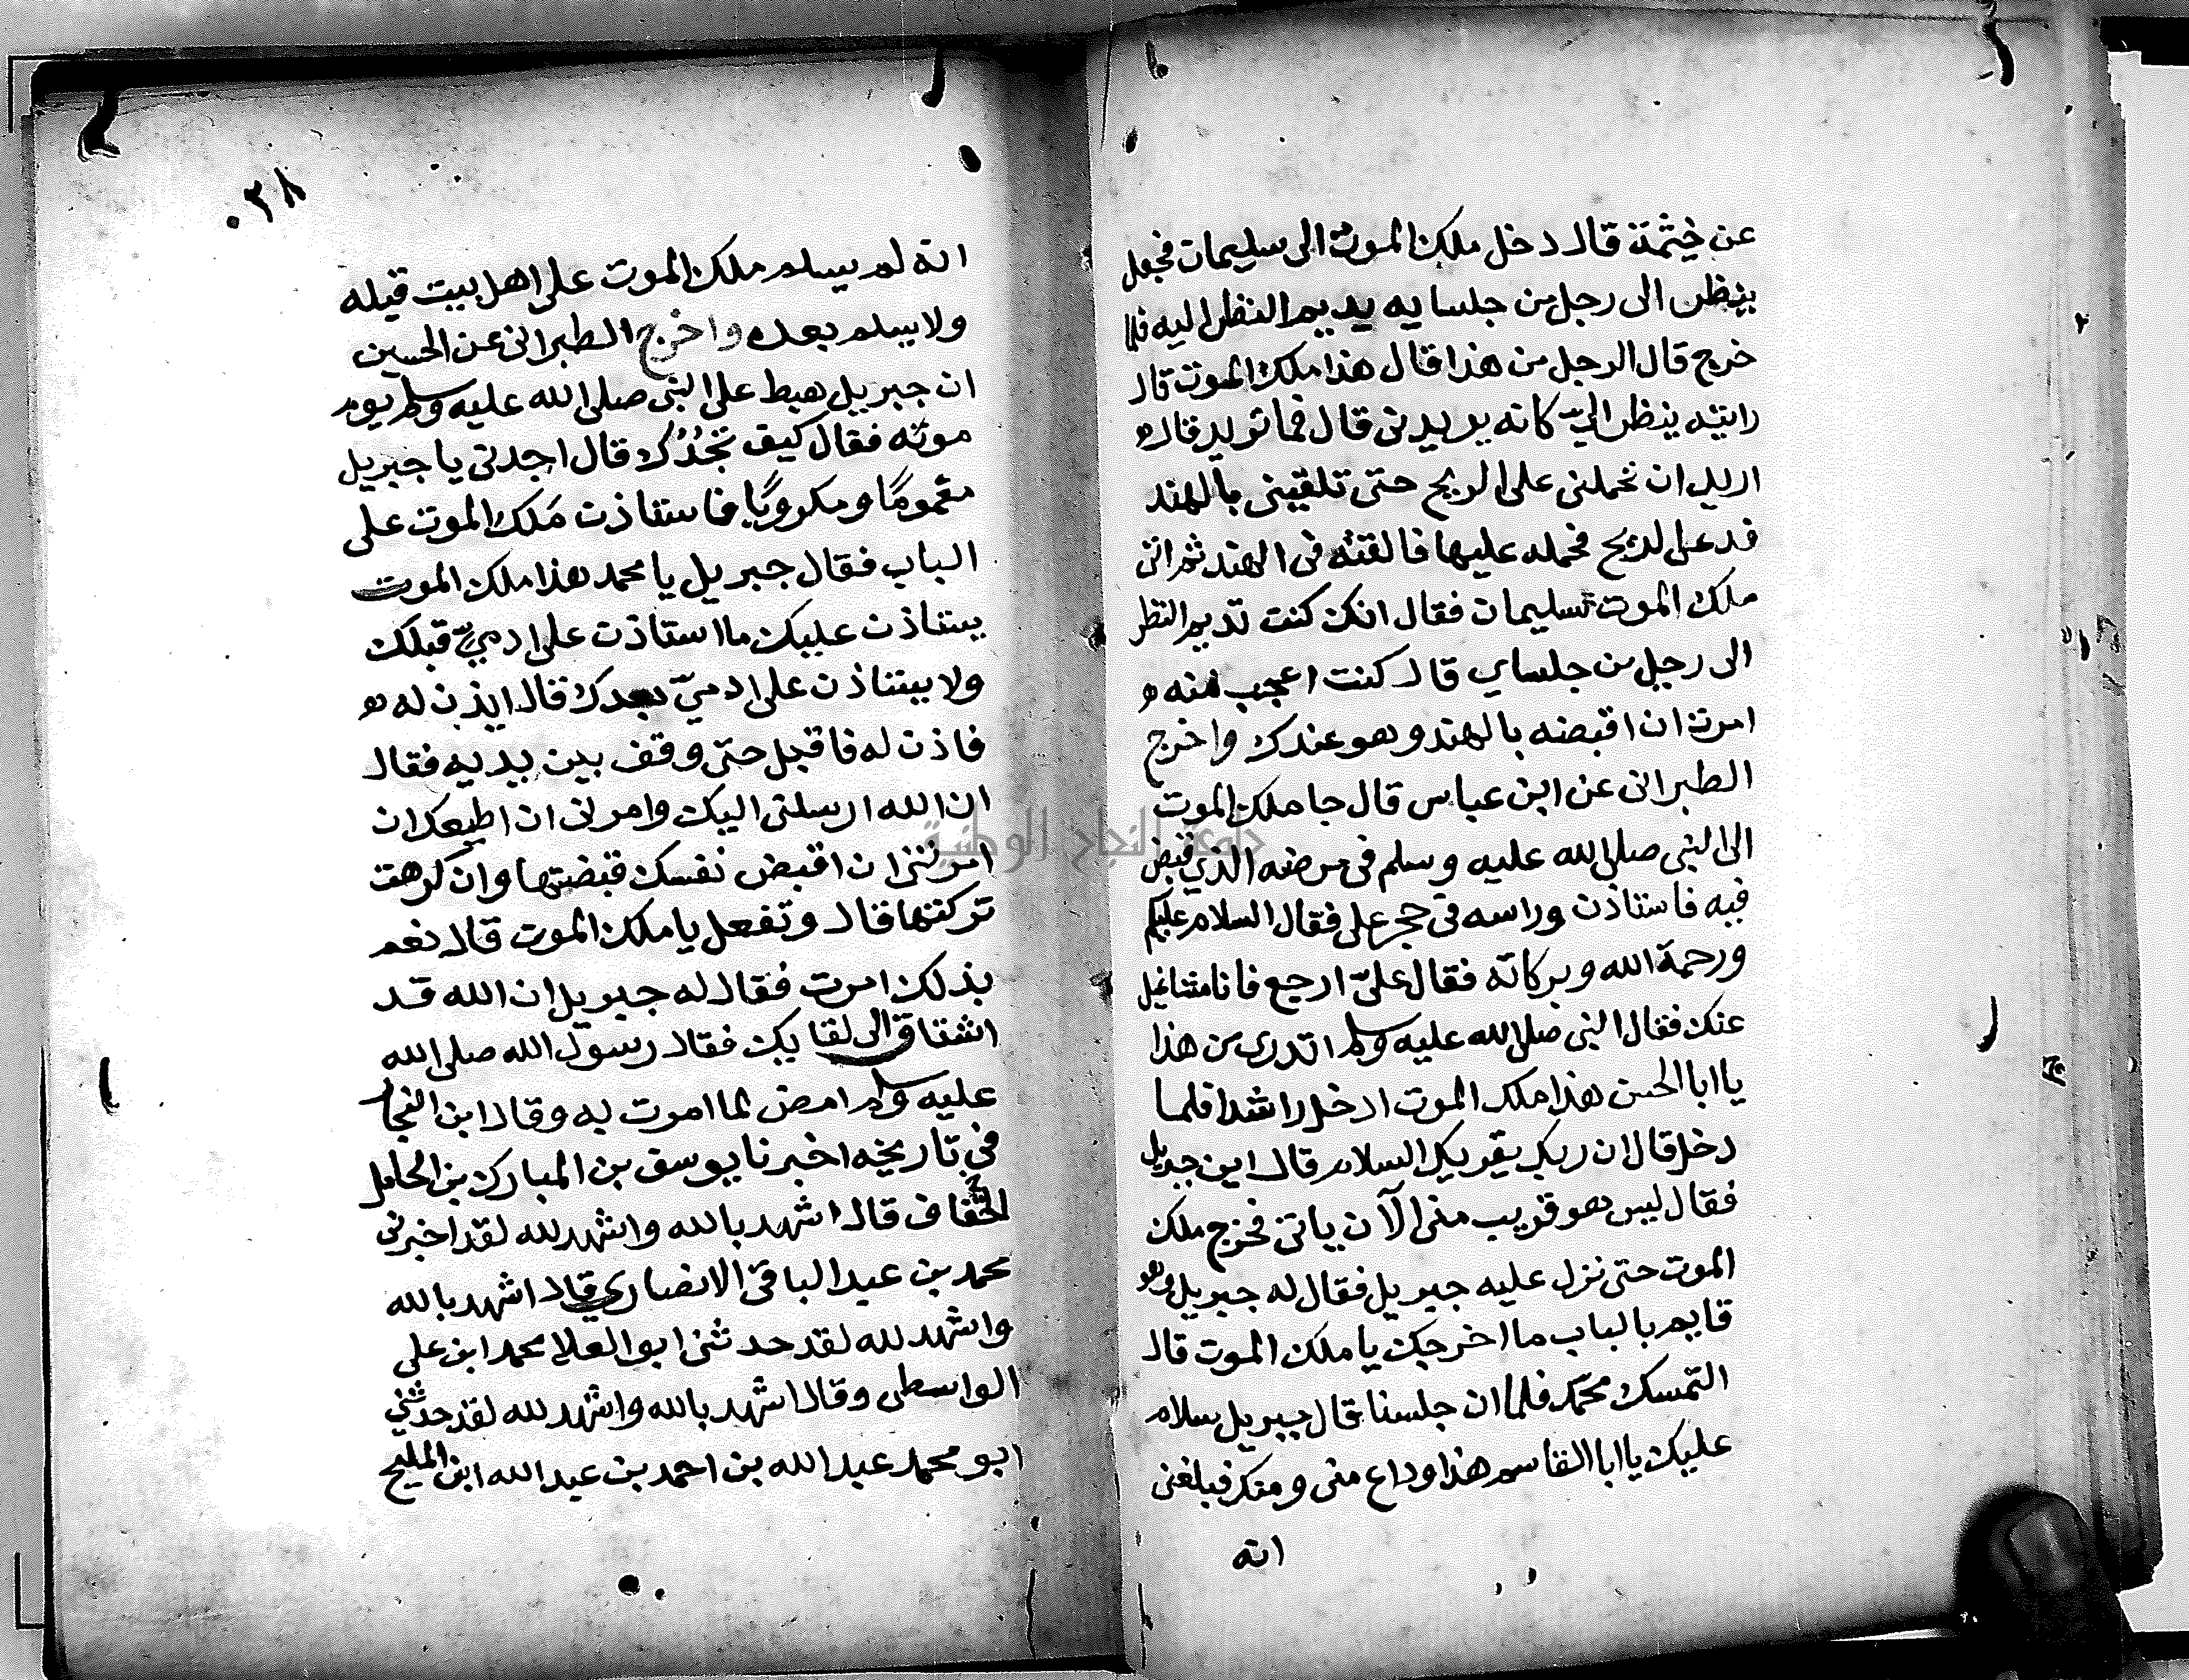 عن خيثمة قال دخل ملك الموت الى سليمان فجعل
ينظر الى رجل من جلسايه يديم النظر اليه فلما
خرج قال الرجل من هذا قال هذا ملك الموت قال
رايته ينظر اليّ كانه يريدنى قال فما تريد قال
اريد ان تحملنى على الريح حتى تلقينى بالهند
فدعى الريح فحمله عليها فالقته فى الهند ثم اتى
ملك الموت سليمان فقال انك كنت تديم النظر
الى رجل من جلساي قال كنت اعجب منه
امرت ان اقبضه بالهند وهو عندك واخرج
الطبرانى عن ابن عباس قال جا ملك الموت
الى النبى صلى الله عليه وسلم فى مرضه الذي قبض
فيه فاستاذن وراسه فى حجر على فقال السلام عليكم
ورحمة الله وبركاته فقال عليّ ارجع فانا مشاغيل
عنك فقال النبى صلى الله عليه وسلم اتدرى من هذا
يا ابا الحسن هذا ملك الموت ادخل راشدا فلما
دخل قال ان ربك يقريك السلام قال اين جبريل
فقال ليس هو قريب منى الآن ياتى فخرج ملك
الموت حتى نزل عليه جبريل فقال له جبريل وهو
قايم بالباب ما اخرجك يا ملك الموت قال
التمسك محمد فلما ان جلسنا قال جبريل سلام
عليك يا ابا القاسم هذا وداع منى ومنك فبلغنى
انه
٠٣٨
انه لم يسلم ملك الموت على اهل بيت قبله
ولا يسلم بعده واخرج الطبرانى عن الحسين
ان جبريل هبط على النبى صلى الله عليه وسلم يوم
موته فقال كيف تجدُك قال اجدنى يا جبريل
مغمومًا ومكروبًا فاستاذن مَلك الموت على
الباب فقال جبريل يا محمد هذا ملك الموت
يستاذن عليك ما استاذن على ادميّ قبلك
ولا يستاذن على ادميّ بعدك قال ايذن له
فاذن له فاقبل حتى وقف بين يديه فقال
ان الله ارسلنى اليك وامرنى ان اطيعك ان
امرتنى ان اقبض نفسك قبضتها وان كرهت
تركتها قال وتفعل يا ملك الموت قال نعم
بذلك امرت فقال له جبريل ان الله قد
اشتاق الى لقايك فقال رسول الله صلى الله
عليه وسلم امض لما امرت به وقال ابن النجار
في تاريخه اخبرنا يوسف بن المبارك بن الحامل
الخفاف قال اشهد بالله واشهد لله لقد اخبرنى
محمد بن عبد الباقى الانصاري قال اشهد بالله
واشهد لله لقد حدثنى ابو العلا محمد ابن على
الواسطى وقال اشهد بالله واشهد لله لقد حدثني
ابو محمد عبد الله بن احمد بن عبد الله ابن المليح
جامعة النجاح الوطنية